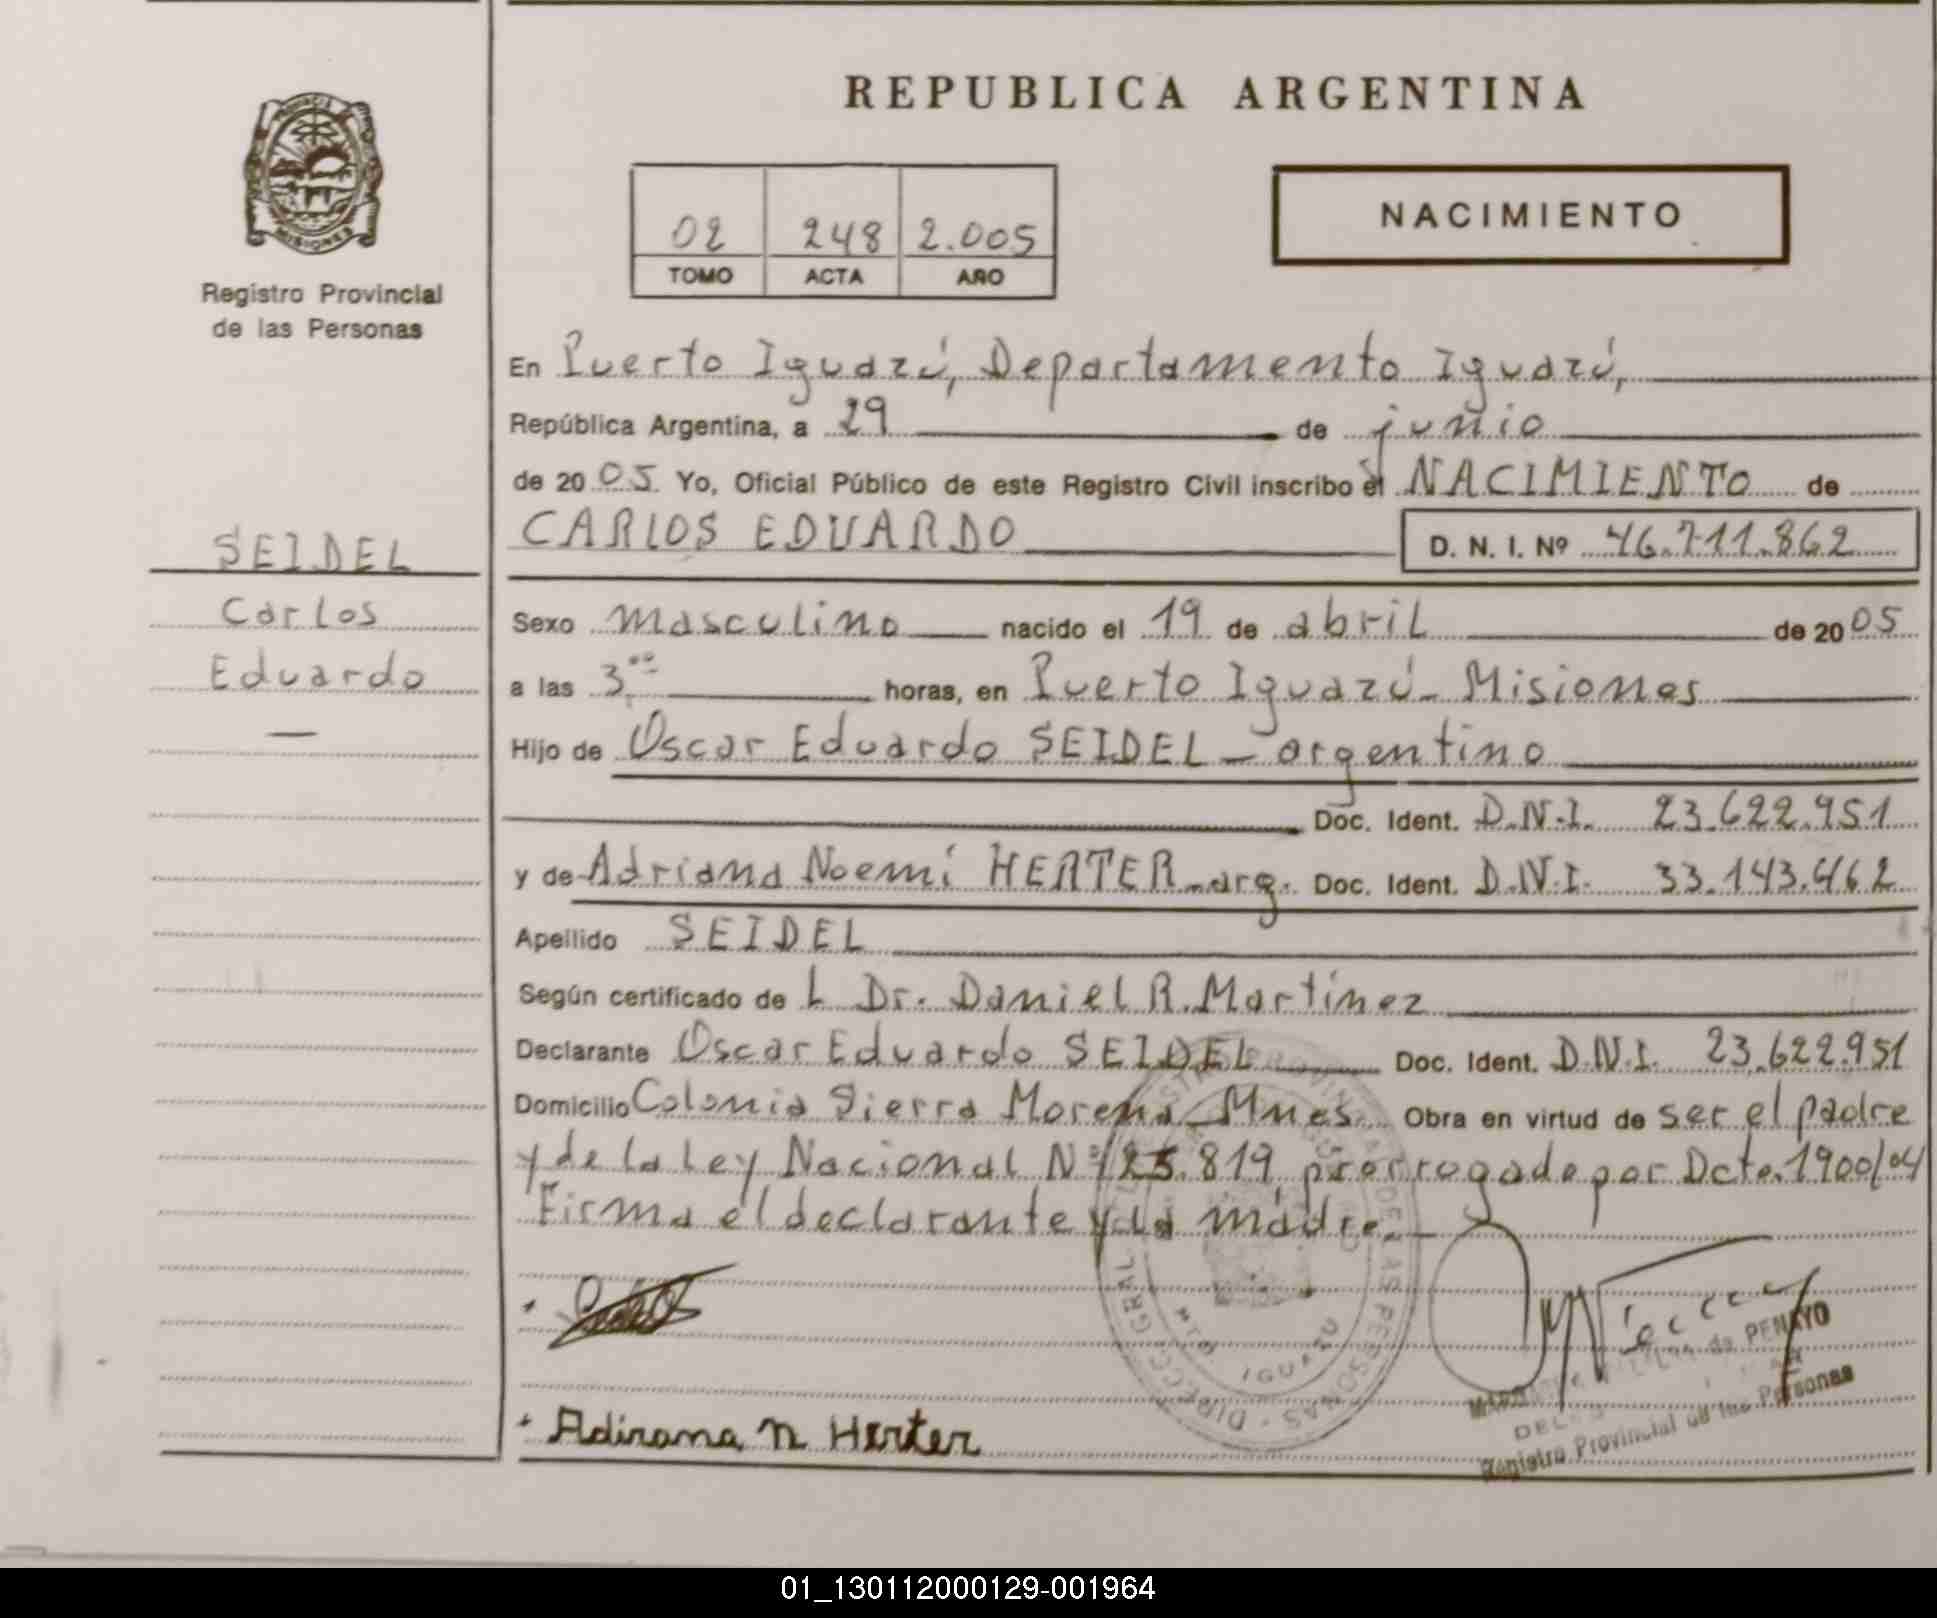 REPUBLICA ARGENTINA
02 248 2.005
TOMO ACTA AÑO
NACIMIENTO
PROVINCIA
MISIONES
Registro Provincial
de las Personas
SEIDEL
Carlos
Eduardo
—
En Puerto Iguazú, Departamento Iguazú,
República Argentina, a 29 de junio
de 2005 Yo, Oficial Público de este Registro Civil inscribo el NACIMIENTO de
CARLOS EDUARDO D. N. I. Nº 46.711.862
Sexo masculino nacido el 19 de abril de 2005
a las 3,00 horas, en Puerto Iguazú - Misiones
Hijo de Oscar Eduardo SEIDEL - argentino
Doc. Ident. D.N.I. 23.622.951
y de Adriana Noemí HERTER - arg. Doc. Ident. D.N.I. 33.143.462
Apellido SEIDEL
Según certificado de L Dr. Daniel R. Martínez
Declarante Oscar Eduardo SEIDEL Doc. Ident. D.N.I. 23.622.951
Domicilio Colonia Sierra Morena - Mnes. Obra en virtud de ser el padre
y de la Ley Nacional Nº 25.819 prorrogade por Dcto. 1900/04
Firma el declarante y la madre. —
Adirana N Herter
DIRECC. GRAL. REGISTRO PROVINCIAL DE LAS PERSONAS
IGUAZU
de PENAYO
Registro Provincial de las Personas
01_130112000129-001964